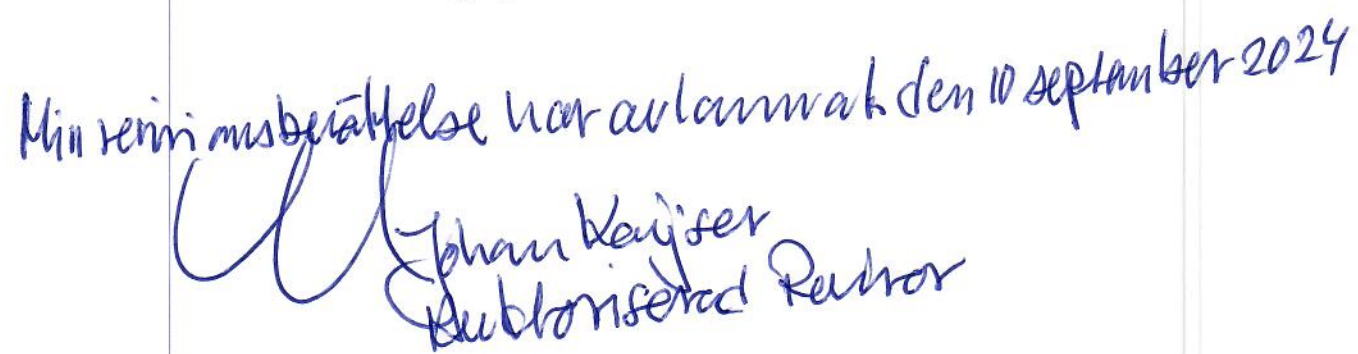 Min revisionsberättelse har avlämnats den 10 september 2024
Johan Kaijser
Auktoriserad Revisor